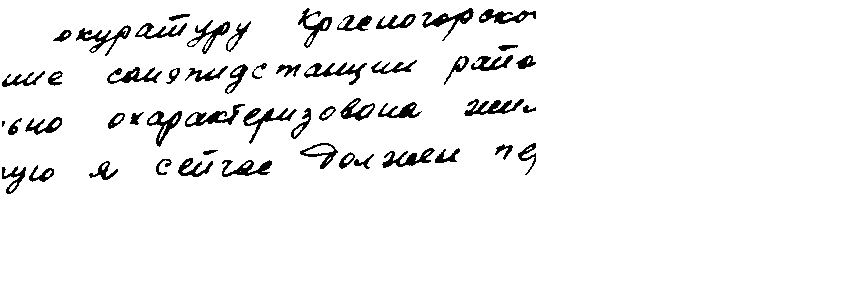 окуратуру Красногорско
ние санэпидстанции райо
ьно охарактеризована жил
ую я сейчас должен пе